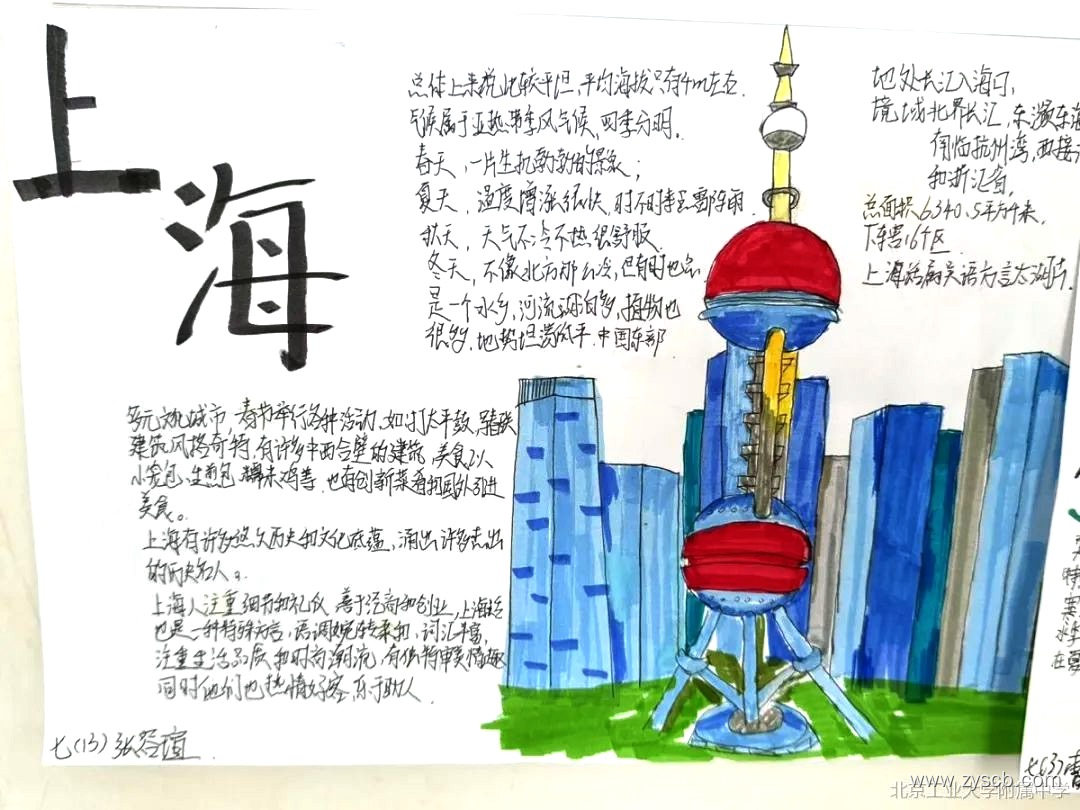 上海
总体上来说比较平坦,平均海拔只有4m左右.
气候属于亚热带季风气候,四季分明.
春天,一片生机勃勃的景象;
夏天,温度增涨很快,时不时来雷阵雨.
秋天,天气不冷不热很舒服.
冬天,不像北方那么冷,但有时也会.
是一个水乡,河流湖泊多,植物也
很多.地势坦荡低平.中国东部
地处长江入海口,
境域北界长江,东濒东海
南临杭州湾,西接
和浙江省,
总面积6340.5平方千米,
下辖16个区
上海话属吴语方言太湖片.
多元文化城市,春节举行各种活动,如打太平鼓,
建筑风格奇特,有许多中西合璧的建筑,美食以
小笼包、生煎包 等,也有创新菜肴和国外引进
美食。
上海有许多悠久历史和文化底蕴,涌出许多杰出
的历史名人。
上海人注重细节和礼仪 善于经商和创业,上海话
也是一种特殊方言,语调婉转柔和,词汇丰富,
注重生活品质和时尚潮流,有独特审美情趣
同时他们也热情好客 乐于助人
七(13)张
特
水
在
七(3)
www.zyscb.com
北京工业大学附属中学